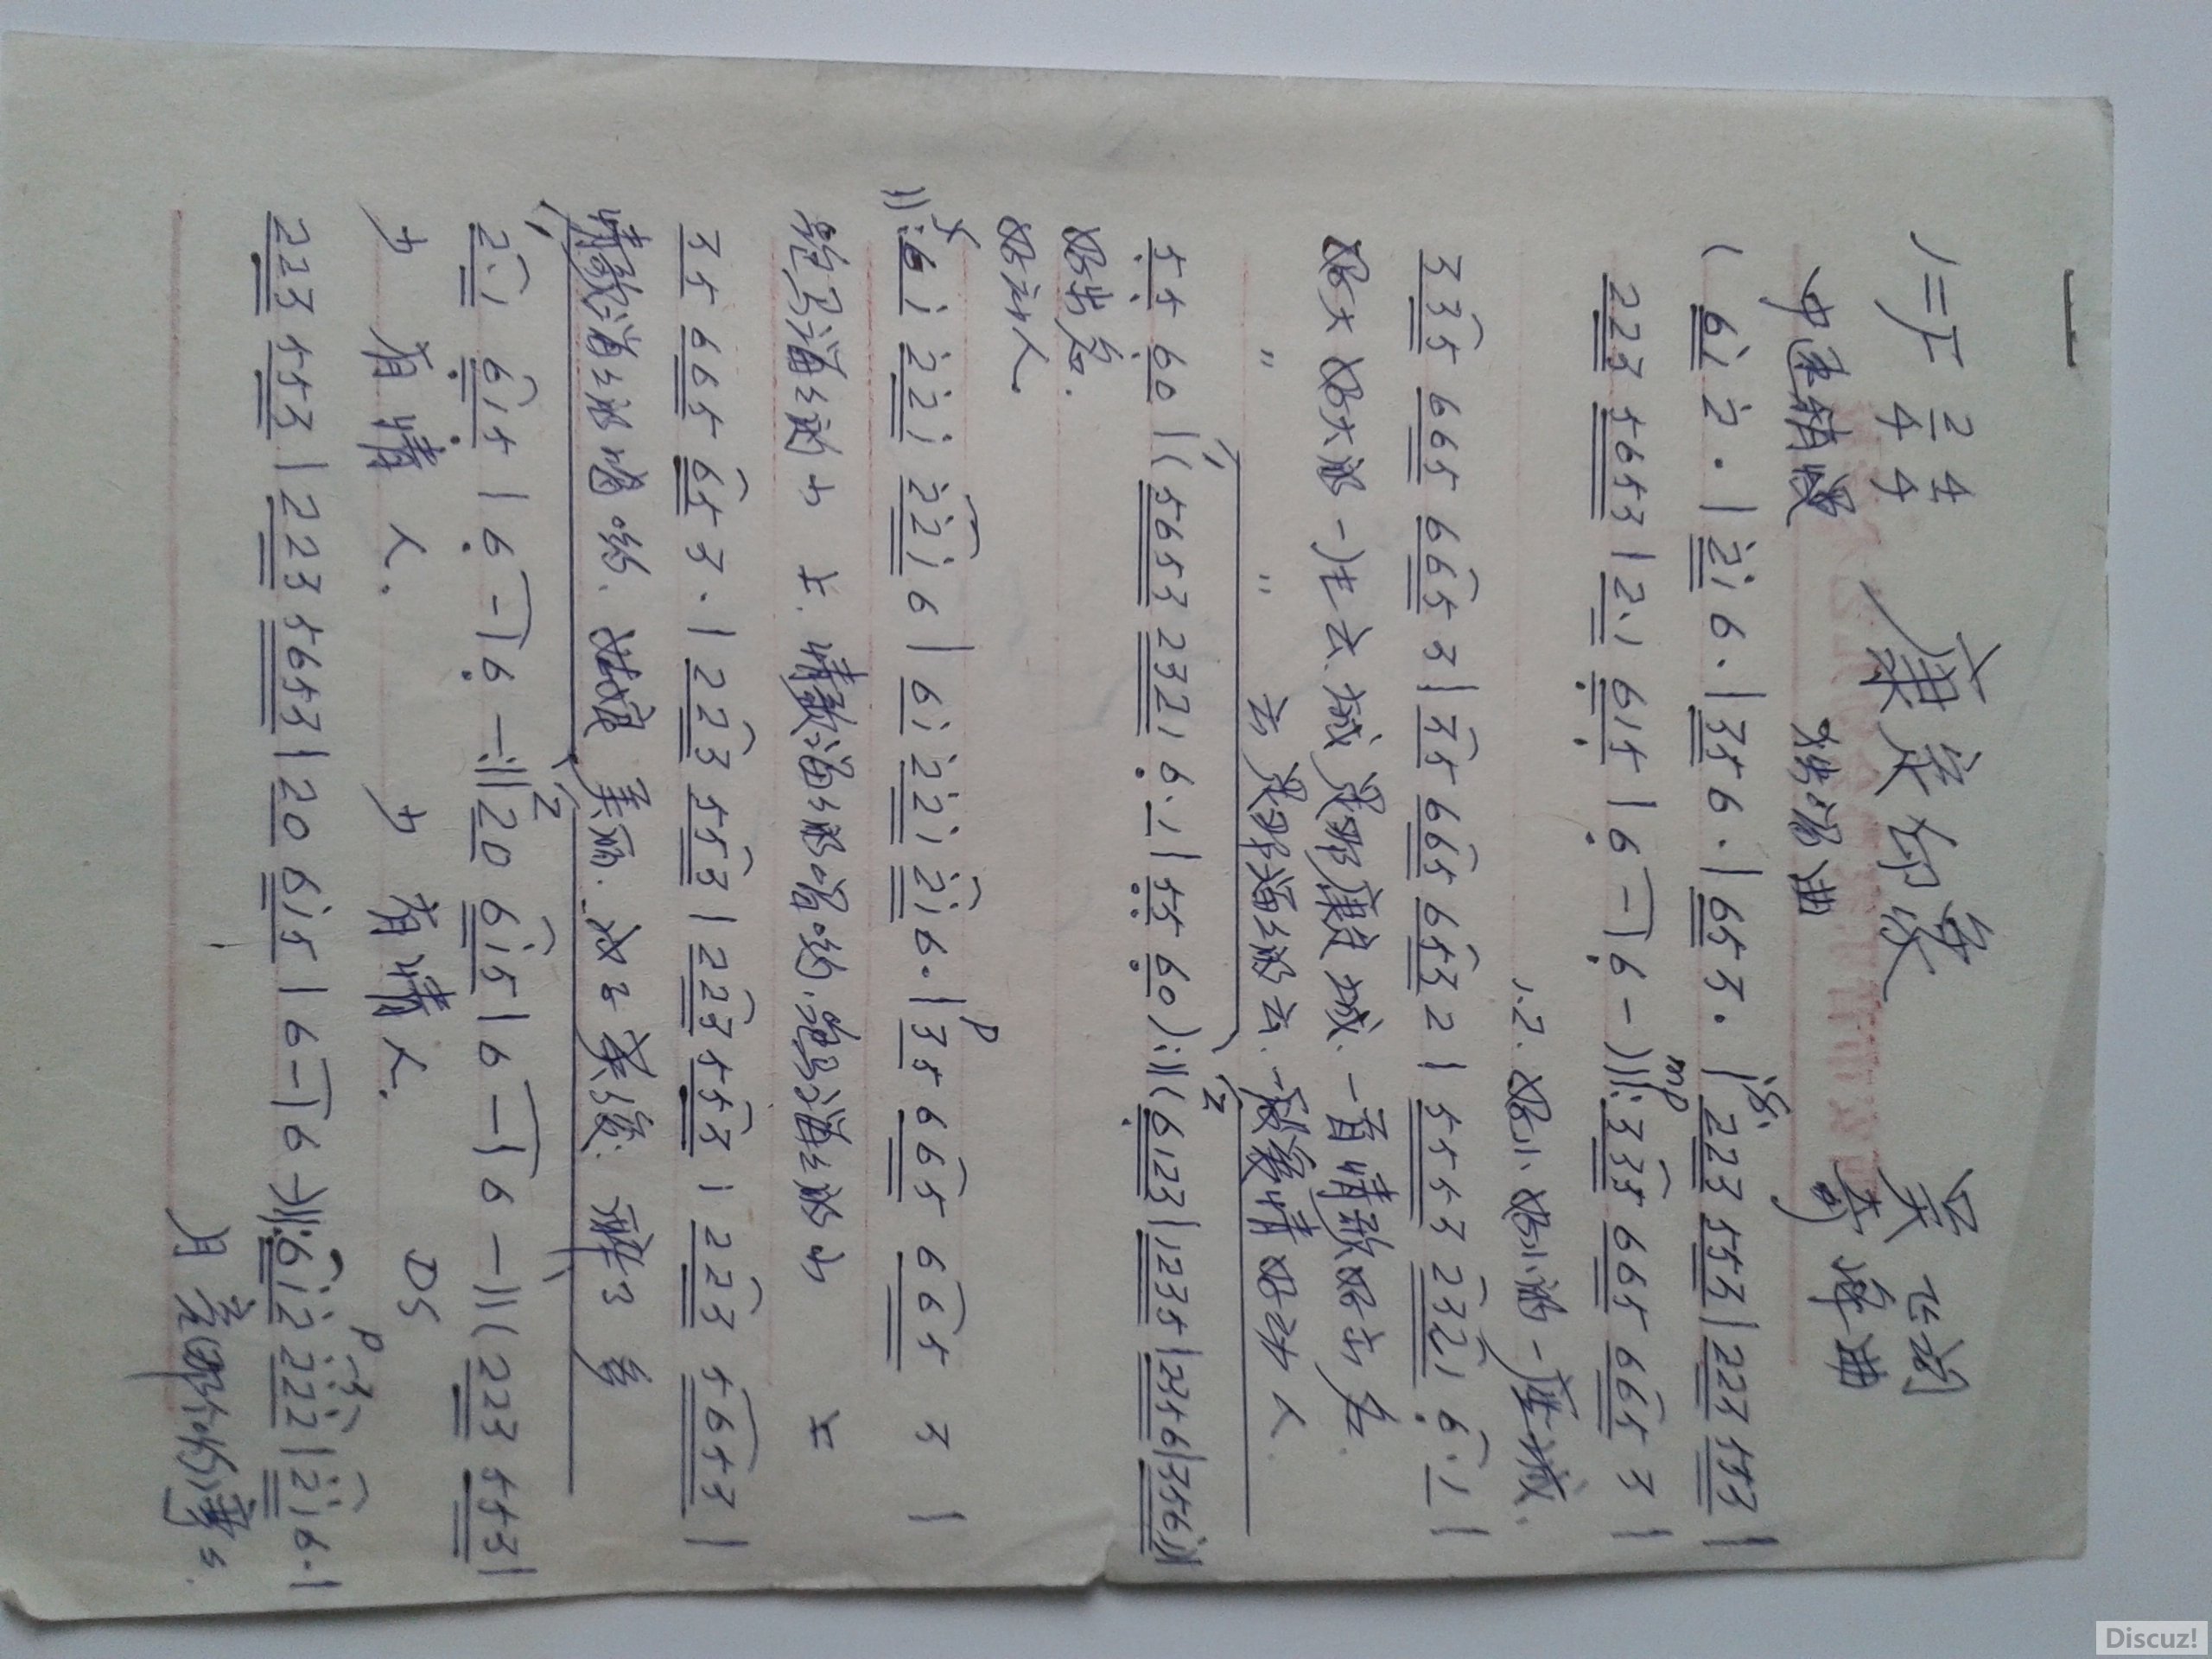 康定印象
1=F 2/4 4/4
中速稍慢
(6i 2· | 2i 6· | 35 6· | 65 3· | 223 553 | 223 553 |
223 5653 | 2·1 615 | 6 - | 6 -)‖: mp 335 665 665 3 |
1.2. 好小好小的一座城.
335 665 665 3 | 35 665 653 2 | 5553 2321 6·1 |
好大好大的一片云. 城是那康定城. 一首情歌好出名.
" " 云是那溜溜的云. 一段爱情好动人
55 60 | (5653 2321 6·1 | 55 60) :‖ (6123 | 1235 | 2356 | 356i)
好出名.
好动人.
‖: f 6i 22i 22i 6 | 6i 22i 2i 6· | p 35 665 665 3 |
跑马溜溜的山上. 情歌溜溜的唱哟. 跑马溜溜的山上
35 665 65 3· | 223 553 | 223 553 | 223 5653 |
情歌溜溜的唱哟. 姑娘美丽. 小子英俊. 醉了多
2·1 615 | 6 - | 6 - :‖ 20 6i5 | 6 - | 6 - ‖ (223 553 |
少有情人. 少有情人. DS
223 553 | 223 5653 | 20 6i5 | 6 - | 6 -)‖: p 6i2 222 | 2i 6· |
Discuz!